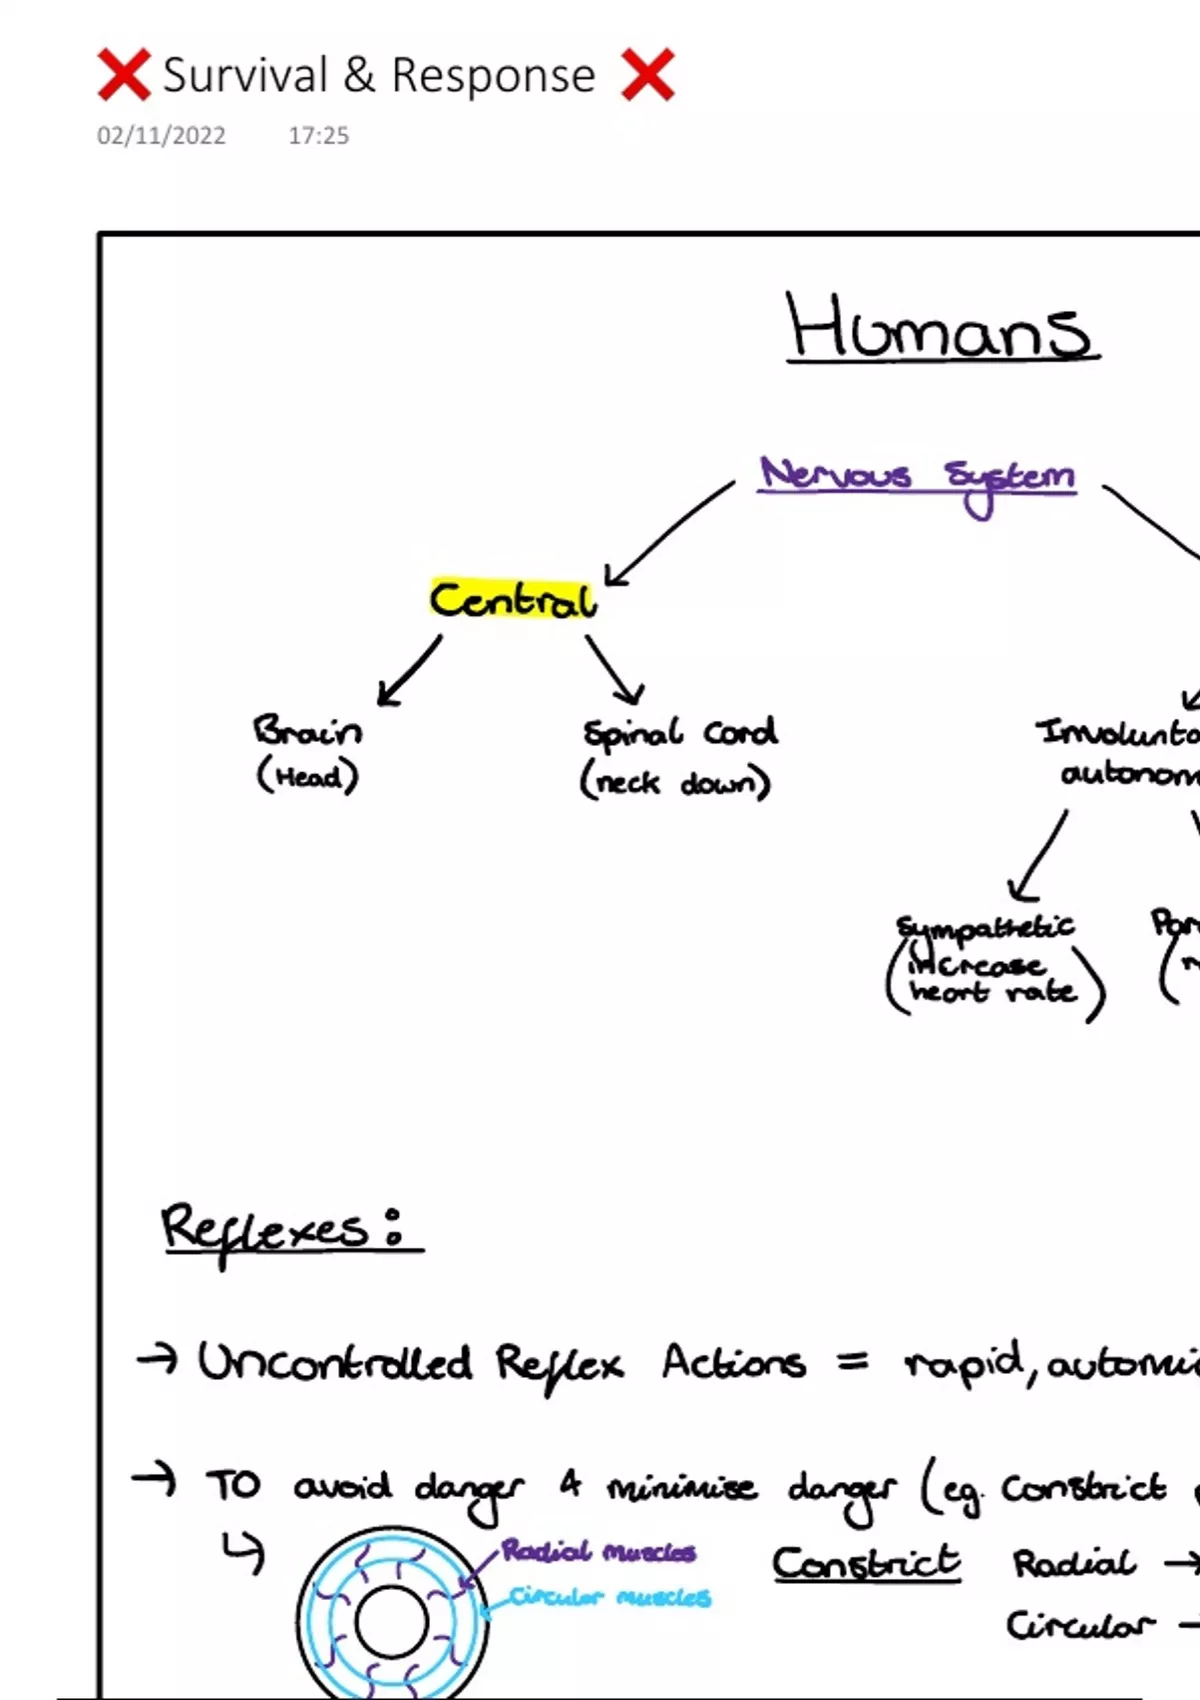 ❌ Survival & Response ❌
02/11/2022 17:25
Humans
Nervous System
Central
Brain
(Head)
Spinal Cord
(neck down)
Involunta
autonom
Sympathetic
(increase
heart rate)
Par
Reflexes:
→ Uncontrolled Reflex Actions = rapid, automi
→ TO avoid danger & minimise danger (eg. Constrict
↳ Radial muscles
Circular muscles
Constrict Radial →
Circular